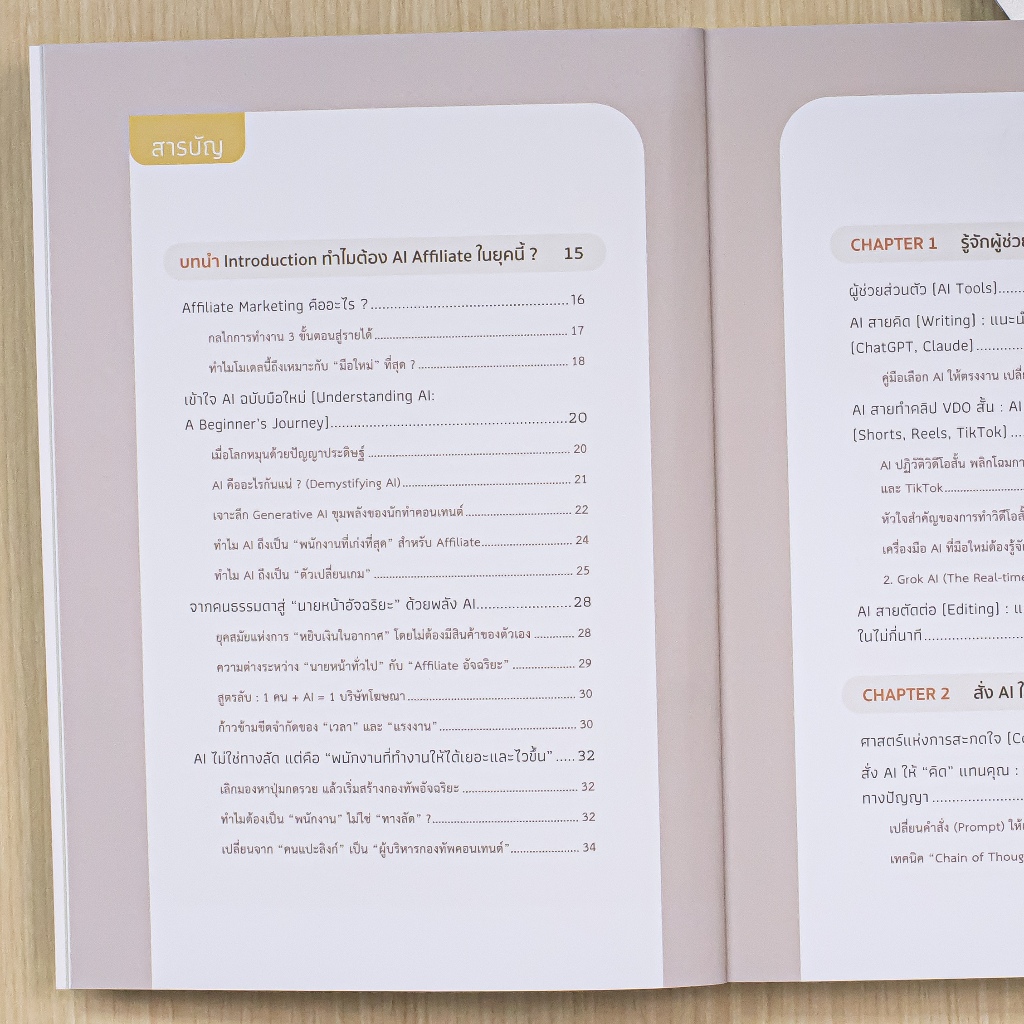 สารบัญ
บทนำ Introduction ทำไมต้อง AI Affiliate ในยุคนี้ ? 15
Affiliate Marketing คืออะไร ?........................................16
กลไกการทำงาน 3 ขั้นตอนสู่รายได้........................................17
ทำไมโมเดลนี้ถึงเหมาะกับ “มือใหม่” ที่สุด ?........................................18
เข้าใจ AI ฉบับมือใหม่ (Understanding AI:
A Beginner’s Journey)........................................20
เมื่อโลกหมุนด้วยปัญญาประดิษฐ์........................................20
AI คืออะไรกันแน่ ? (Demystifying AI)........................................21
เจาะลึก Generative AI ขุมพลังของนักทำคอนเทนต์........................................22
ทำไม AI ถึงเป็น “พนักงานที่เก่งที่สุด” สำหรับ Affiliate........................................24
ทำไม AI ถึงเป็น “ตัวเปลี่ยนเกม”........................................25
จากคนธรรมดาสู่ “นายหน้าอัจฉริยะ” ด้วยพลัง AI........................................28
ยุคสมัยแห่งการ “หยิบเงินในอากาศ” โดยไม่ต้องมีสินค้าของตัวเอง............28
ความต่างระหว่าง “นายหน้าทั่วไป” กับ “Affiliate อัจฉริยะ”........................................29
สูตรลับ : 1 คน + AI = 1 บริษัทโฆษณา........................................30
ก้าวข้ามขีดจำกัดของ “เวลา” และ “แรงงาน”........................................30
AI ไม่ใช่ทางลัด แต่คือ “พนักงานที่ทำงานให้ได้เยอะและไวขึ้น”.....32
เลิกมองหาปุ่มกดรวย แล้วเริ่มสร้างกองทัพอัจฉริยะ........................................32
ทำไมต้องเป็น “พนักงาน” ไม่ใช่ “ทางลัด” ?........................................32
เปลี่ยนจาก “คนแปะลิงก์” เป็น “ผู้บริหารกองทัพคอนเทนต์”........................................34
CHAPTER 1 รู้จักผู้ช่วย
ผู้ช่วยส่วนตัว (AI Tools).......
AI สายคิด (Writing) : แนะนำ
(ChatGPT, Claude)............
คู่มือเลือก AI ให้ตรงงาน
AI สายทำคลิป VDO สั้น : AI
(Shorts, Reels, TikTok)....
AI ปฏิวัติวิดีโอสั้น พลิกโฉม
และ TikTok........................
หัวใจสำคัญของการทำวิดีโอสั้น
เครื่องมือ AI ที่มือใหม่ต้อง
2. Grok AI (The Real-time
AI สายตัดต่อ (Editing) :
ในไม่กี่นาที........................
CHAPTER 2 สั่ง AI
ศาสตร์แห่งการสะกดใจ
สั่ง AI ให้ “คิด” แทนคุณ :
ทางปัญญา........................
เปลี่ยนคำสั่ง (Prompt)
เทคนิค “Chain of